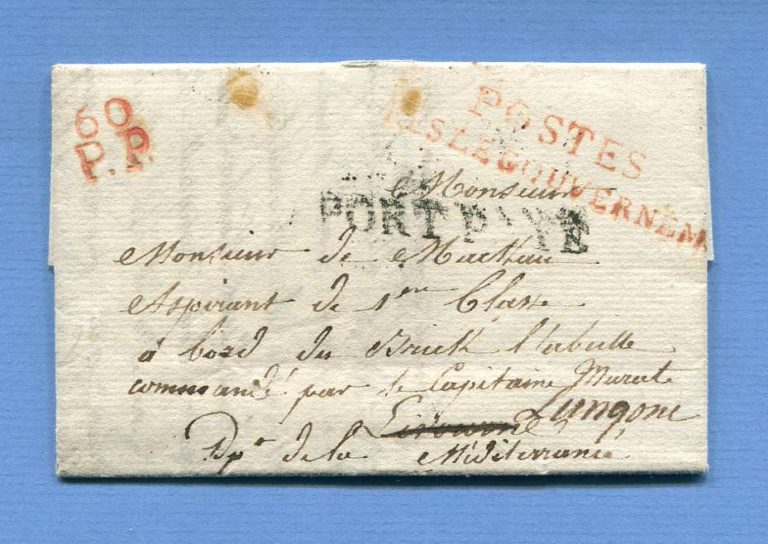 60
P.P.
POSTES
PRÈS LE GOUVERNEM
PORT PAYÉ
Monsieur
Monsieur de Mackau
Aspirant de 1ere Classe
à bord du Brick l'abeille
commandé par le Capitaine Murat
Livourne Longone
Dpt de la Méditerranée